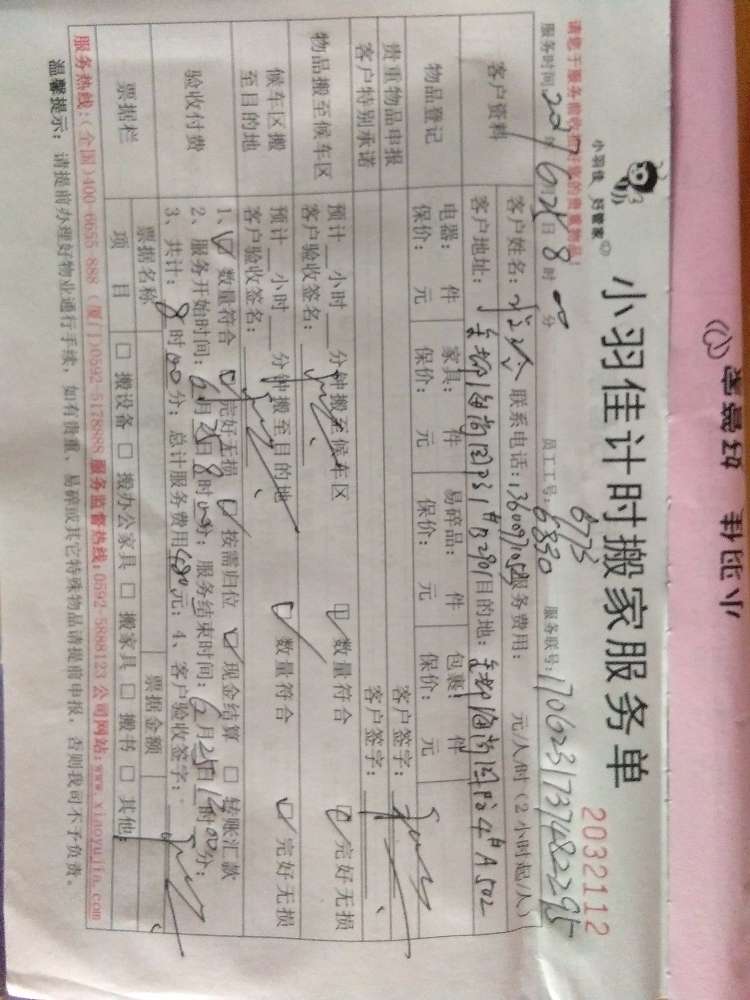 小羽佳 好管家
小羽佳计时搬家服务单
2032112
请您于服务前收拾好您的贵重物品！
员工工号: 6773 6330
服务联号: 1706231737482295
服务时间: 2017年6月25日8时00分
客户资料
客户姓名: 联系电话: 服务费用: 元/人/时（2小时起/人）
客户地址: 目的地:
物品登记
电器: 件 家具: 件 易碎品: 件 包裹: 件
保价: 元 保价: 元 保价: 元 保价: 元
贵重物品申报 客户签字:
客户特别承诺 客户签字:
物品搬至候车区
预计 小时 分钟搬至候车区 数量符合 完好无损
客户验收签名:
候车区搬至目的地
预计 小时 分钟搬至目的地 数量符合 完好无损
客户验收签名:
验收付费
1、数量符合 完好无损 按需归位 现金结算 转账汇款
2、服务开始时间: 6月25日8时00分; 服务结束时间: 6月25日 时00分;
3、共计: 8时00分; 总计服务费用 480元; 4、客户验收签字:
票据栏
票据名称 票据金额
项目 搬设备 搬办公家具 搬家具 搬书 其他:
服务热线:(全国)400-6655 888 (厦门)0592-5178888 服务监督热线:0592-5888123 公司网站:www.xiaoyujia.com
温馨提示: 请提前办理好物业通行手续, 如有贵重、易碎或其它特殊物品请提前申报, 否则我司不予负责。